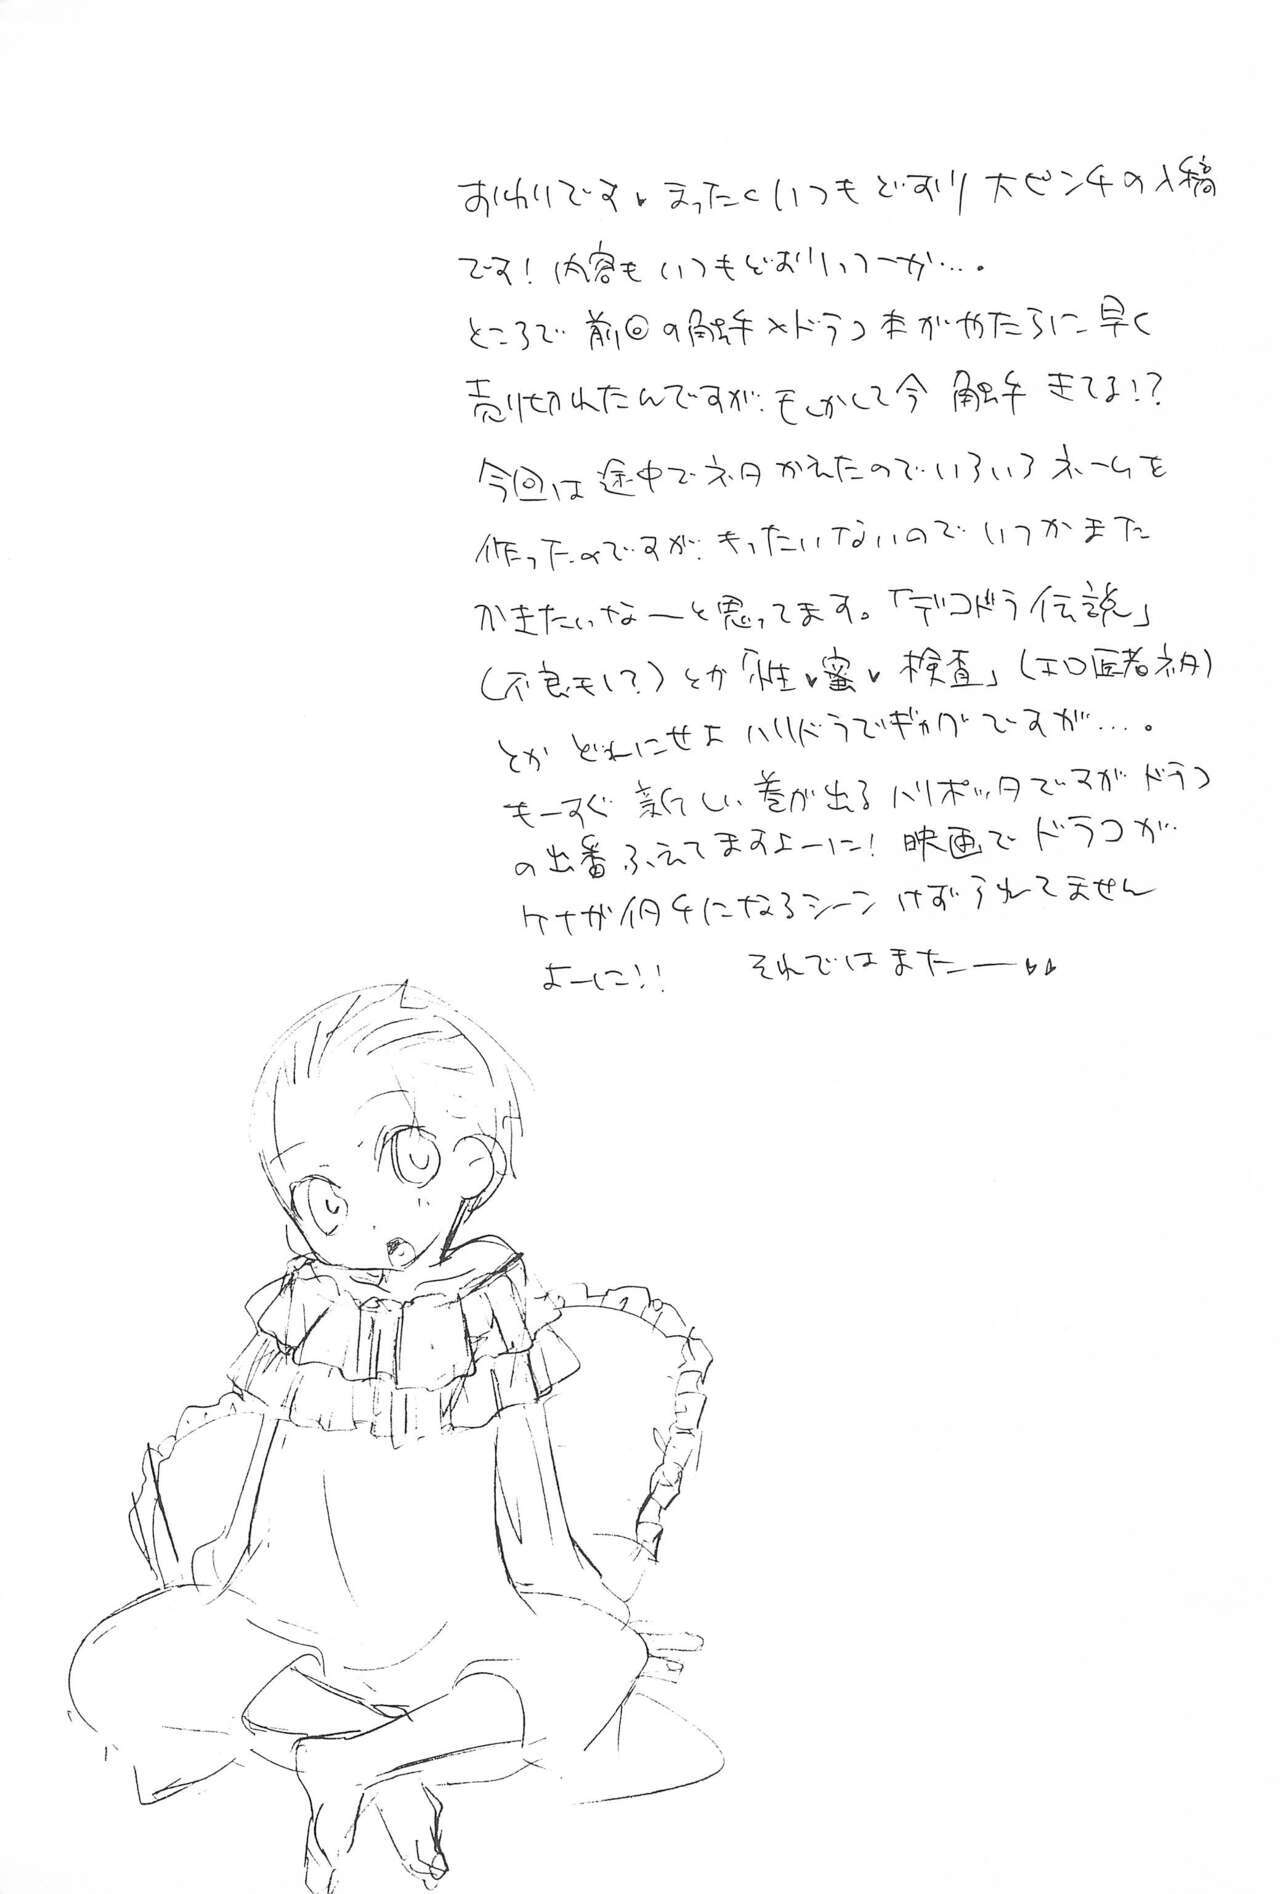 おわりです♥まったくいつもどおり大ピンチの入稿
です！内容もいつもどおりっつーか…。
ところで前回の触手×ドラコ本がやたらに早く
売り切れたんですがもしかして今触手きてる！？
今回は途中でネタかえたのでいろいろネームを
作ったのですがもったいないのでいつかまた
かきたいなーと思ってます。「デコドラ伝説」
（不良モノ？）とか「性♥蜜♥検査」（エロ医者ネタ）
とかどれにせよハリドラでギャグですが…。
もーすぐ新しい巻が出るハリポッタですがドラコ
の出番ふえてますよーに！映画でドラコが
ケナガイタチになるシーンけずられてません
よーに！！　それではまたー♥♥